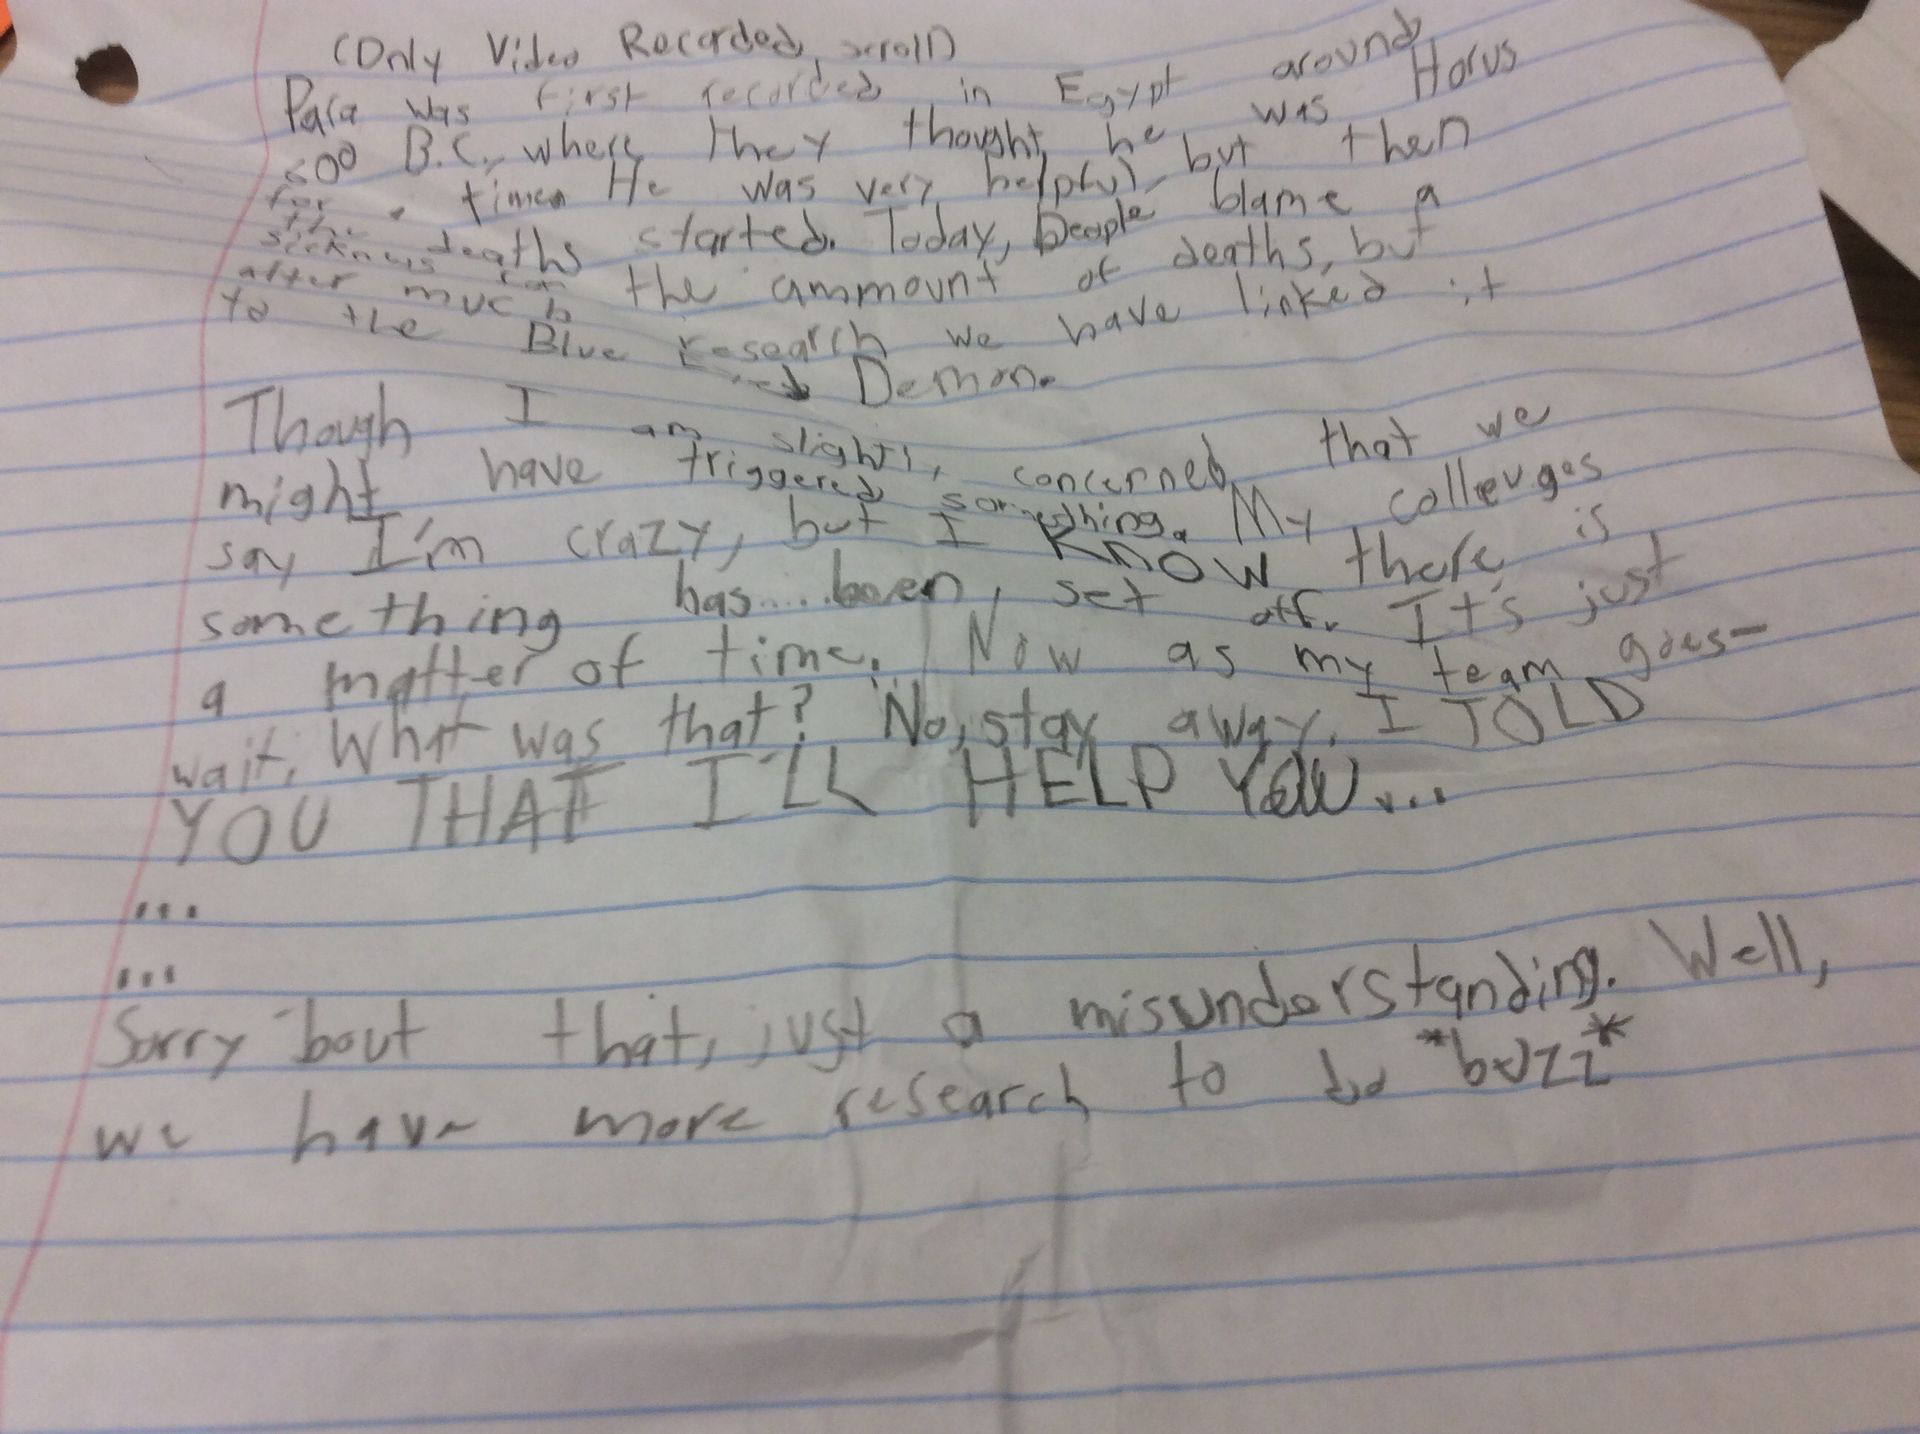 (Only Video Recorded scroll)
Para was first recorded in Egypt around
500 B.C., where they thought he was Horus
for . time. He was very helpful, but then
the deaths started. Today, people blame a
sickness for the ammount of deaths, but
after much research we have linked it
to the Blue Demon.
Though I am slightly concerned that we
might have triggered something. My colleuges
say I'm crazy, but I KNOW there is
something has....been, set off. It's just
a matter of time. Now as my team goes-
wait. What was that? No, stay away. I TOLD
YOU THAT I'LL HELP YOU...
...
...
Sorry 'bout that, just a misunderstanding. Well,
we have more research to do *buzz*